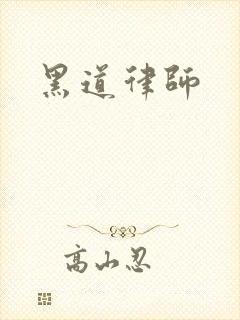 黑道律師
高山忍